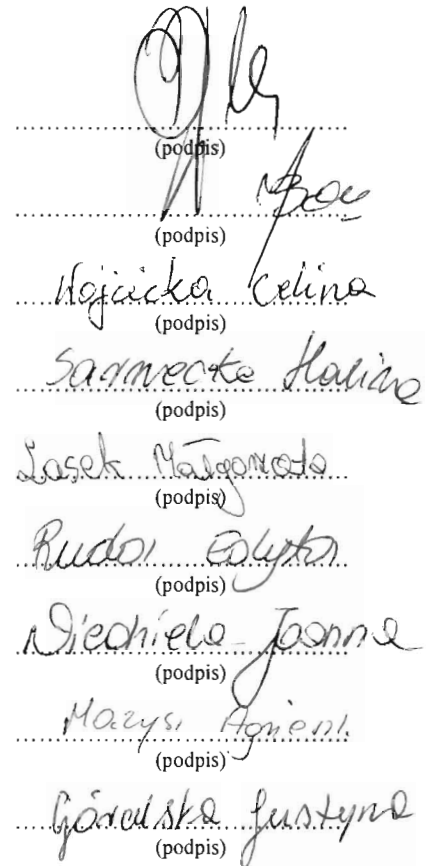 (podpis)
(podpis)
Wójcicka Celina
(podpis)
Sarnecka Halina
(podpis)
Lasek Małgorzata
(podpis)
Ruda Edyta
(podpis)
Niedziela Joanna
(podpis)
(podpis)
Góralska Justyna
(podpis)